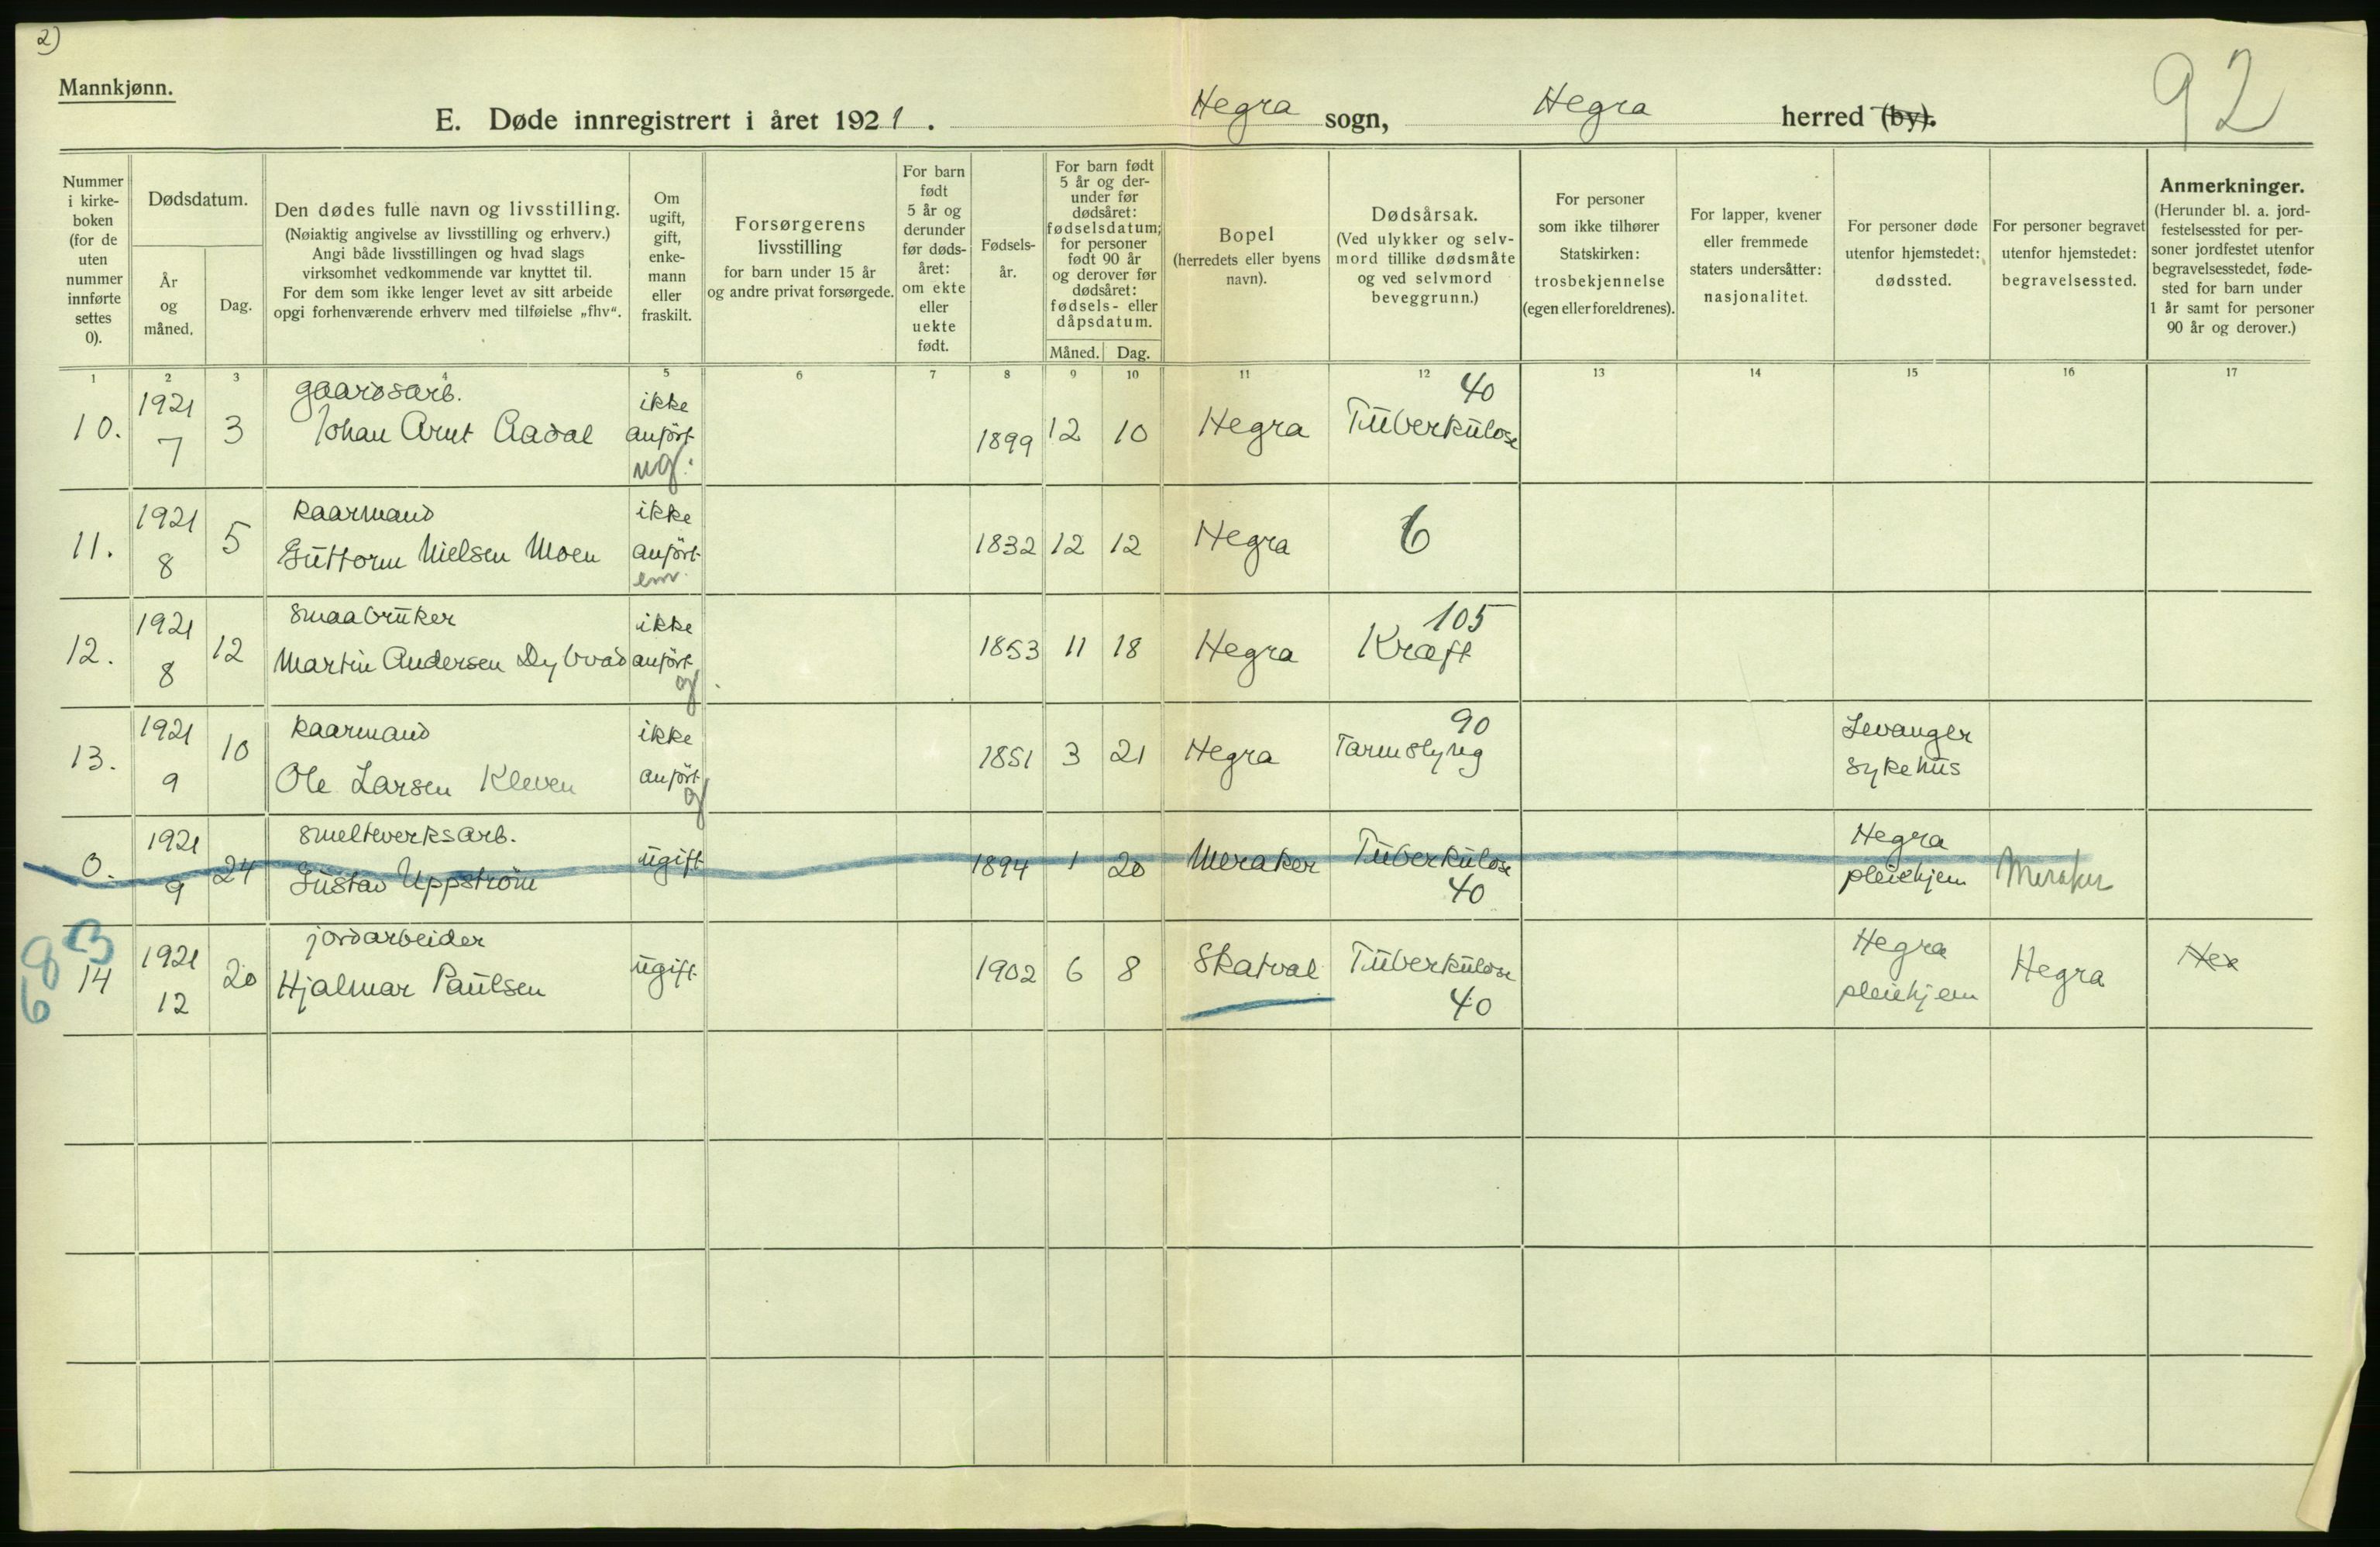 2)
Mannkjønn.
E. Døde innregistrert i året 1921. Hegra sogn, Hegra herred (by).
92
Nummer i kirke- boken (for de uten nummer innførte settes 0).
Dødsdatum.
År og måned.
Dag.
Den dødes fulle navn og livsstilling.
(Nøiaktig angivelse av livsstilling og erhverv.)
Angi både livsstillingen og hvad slags
virksomhet vedkommende var knyttet til.
For dem som ikke lenger levet av sitt arbeide
opgi forhenværende erhverv med tilføielse „fhv“.
Om ugift, gift, enke- mann eller fraskilt.
Forsørgerens
livsstilling
for barn under 15 år
og andre privat forsørgede.
For barn født 5 år og derunder før døds- året: om ekte eller uekte født.
Fødsels- år.
For barn født 5 år og der- under før dødsåret: fødselsdatum; for personer født 90 år og derover før dødsåret: fødsels- eller dåpsdatum.
Måned. Dag.
Bopel
(herredets eller byens
navn).
Dødsårsak.
(Ved ulykker og selv-
mord tillike dødsmåte
og ved selvmord
beveggrunn.)
For personer
som ikke tilhører
Statskirken:
trosbekjennelse
(egen eller foreldrenes).
For lapper, kvener
eller fremmede
staters undersåtter:
nasjonalitet.
For personer døde
utenfor hjemstedet:
dødssted.
For personer begravet
utenfor hjemstedet:
begravelsessted.
Anmerkninger.
(Herunder bl. a. jord-
festelsessted for per-
soner jordfestet utenfor
begravelsesstedet, føde-
sted for barn under
1 år samt for personer
90 år og derover.)
1 2 3 4 5 6 7 8 9 10 11 12 13 14 15 16 17
gaardsarb. 40
10. 1921 7 3 Johan Arnt Aadal ikke anført ug. 1899 12 10 Hegra Tuberkulose
kaarmand
11. 1921 8 5 Guttorm Nielsen Moen ikke anført em. 1832 12 12 Hegra 6
smaabruker 105
12. 1921 8 12 Martin Andersen Dybvad ikke anført g 1853 11 18 Hegra Kræft
kaarmand 90
13. 1921 9 10 Ole Larsen Kleven ikke anført g 1851 3 21 Hegra Tarmslyng Levanger sykehus
smelteverksarb.
0. 1921 9 24 Gustav Uppstrøm ugift 1894 1 20 Meraker Tuberkulose 40 Hegra pleiehjem Meraker
683
jordarbeider
14 1921 12 20 Hjalmar Paulsen ugift 1902 6 8 Skatval Tuberkulose 40 Hegra pleiehjem Hegra